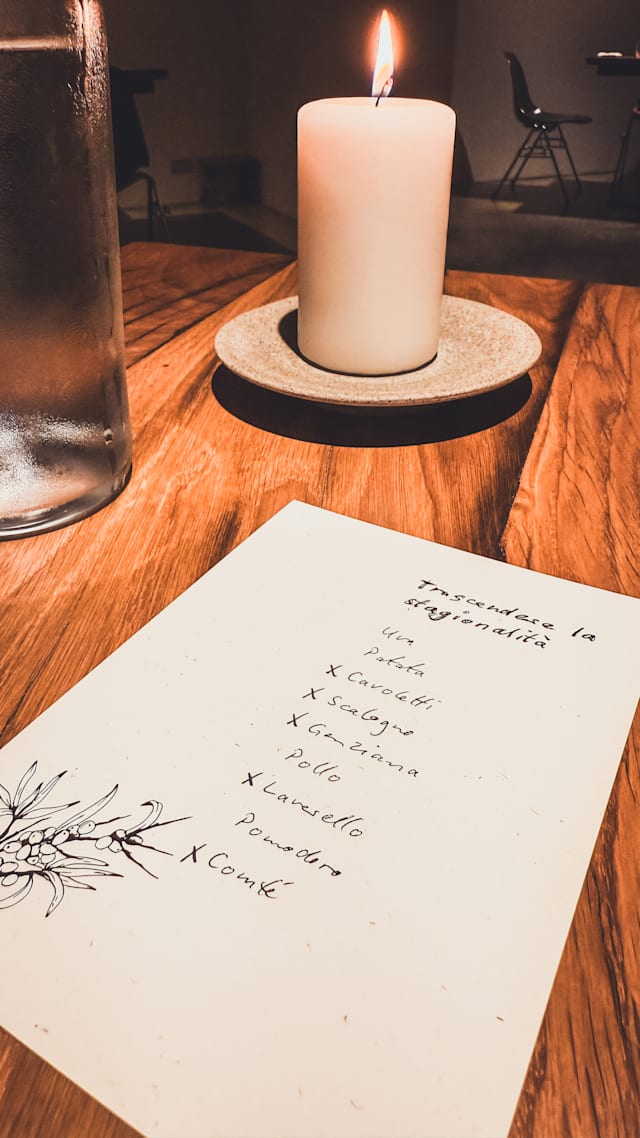 Trascendere la
stagionalità
Uva
Patata
x Cavoletti
x Scalogno
x Genziana
Pollo
x Lavarello
Pomodoro
x Comté